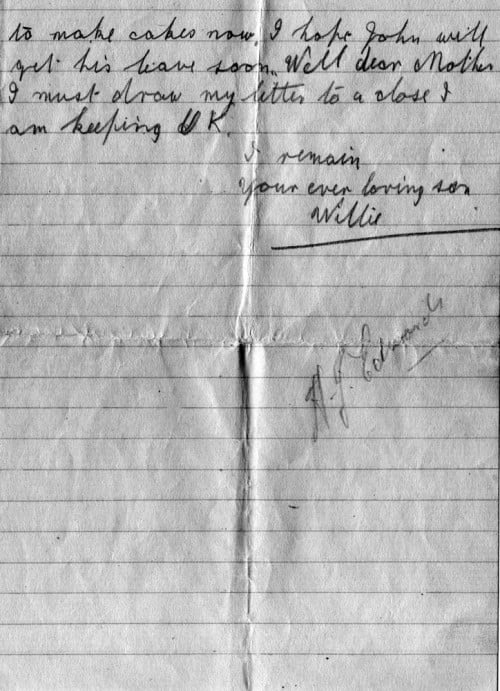 to make cakes now. I hope John will
get his leave soon. Well dear Mother
I must draw my letter to a close I
am keeping O K.
I remain
Your ever loving son
Willie
Edwards